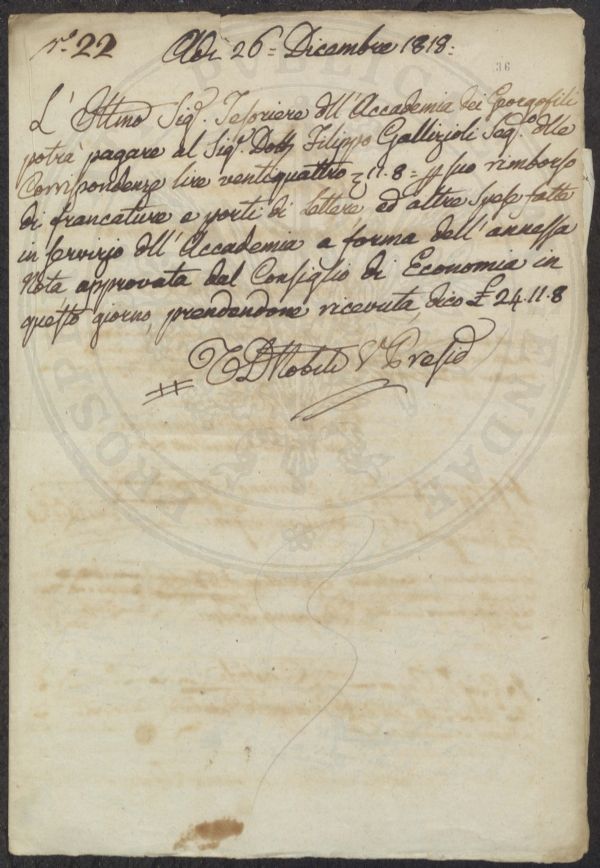 N.° 22 Adì 26 = Dicembre 1818 =
36
L' Ill.mo Sig.r Tesoriere dell'Accademia dei Georgofili
potrà pagare al Sig.r Dott. Filippo Gallizioli Seg.o delle
Corrispondenze lire ventiquattro 11.8 = p suo rimborso
di francature e porti di lettere ed altre spese fatte
in servizio dell'Accademia a forma dell'annessa
Nota approvata dal Consiglio di Economia in
questo giorno, prendendone ricevuta, dico £ 24.11.8
Nobili V Presid
PROSPERITATI AUGENDAE